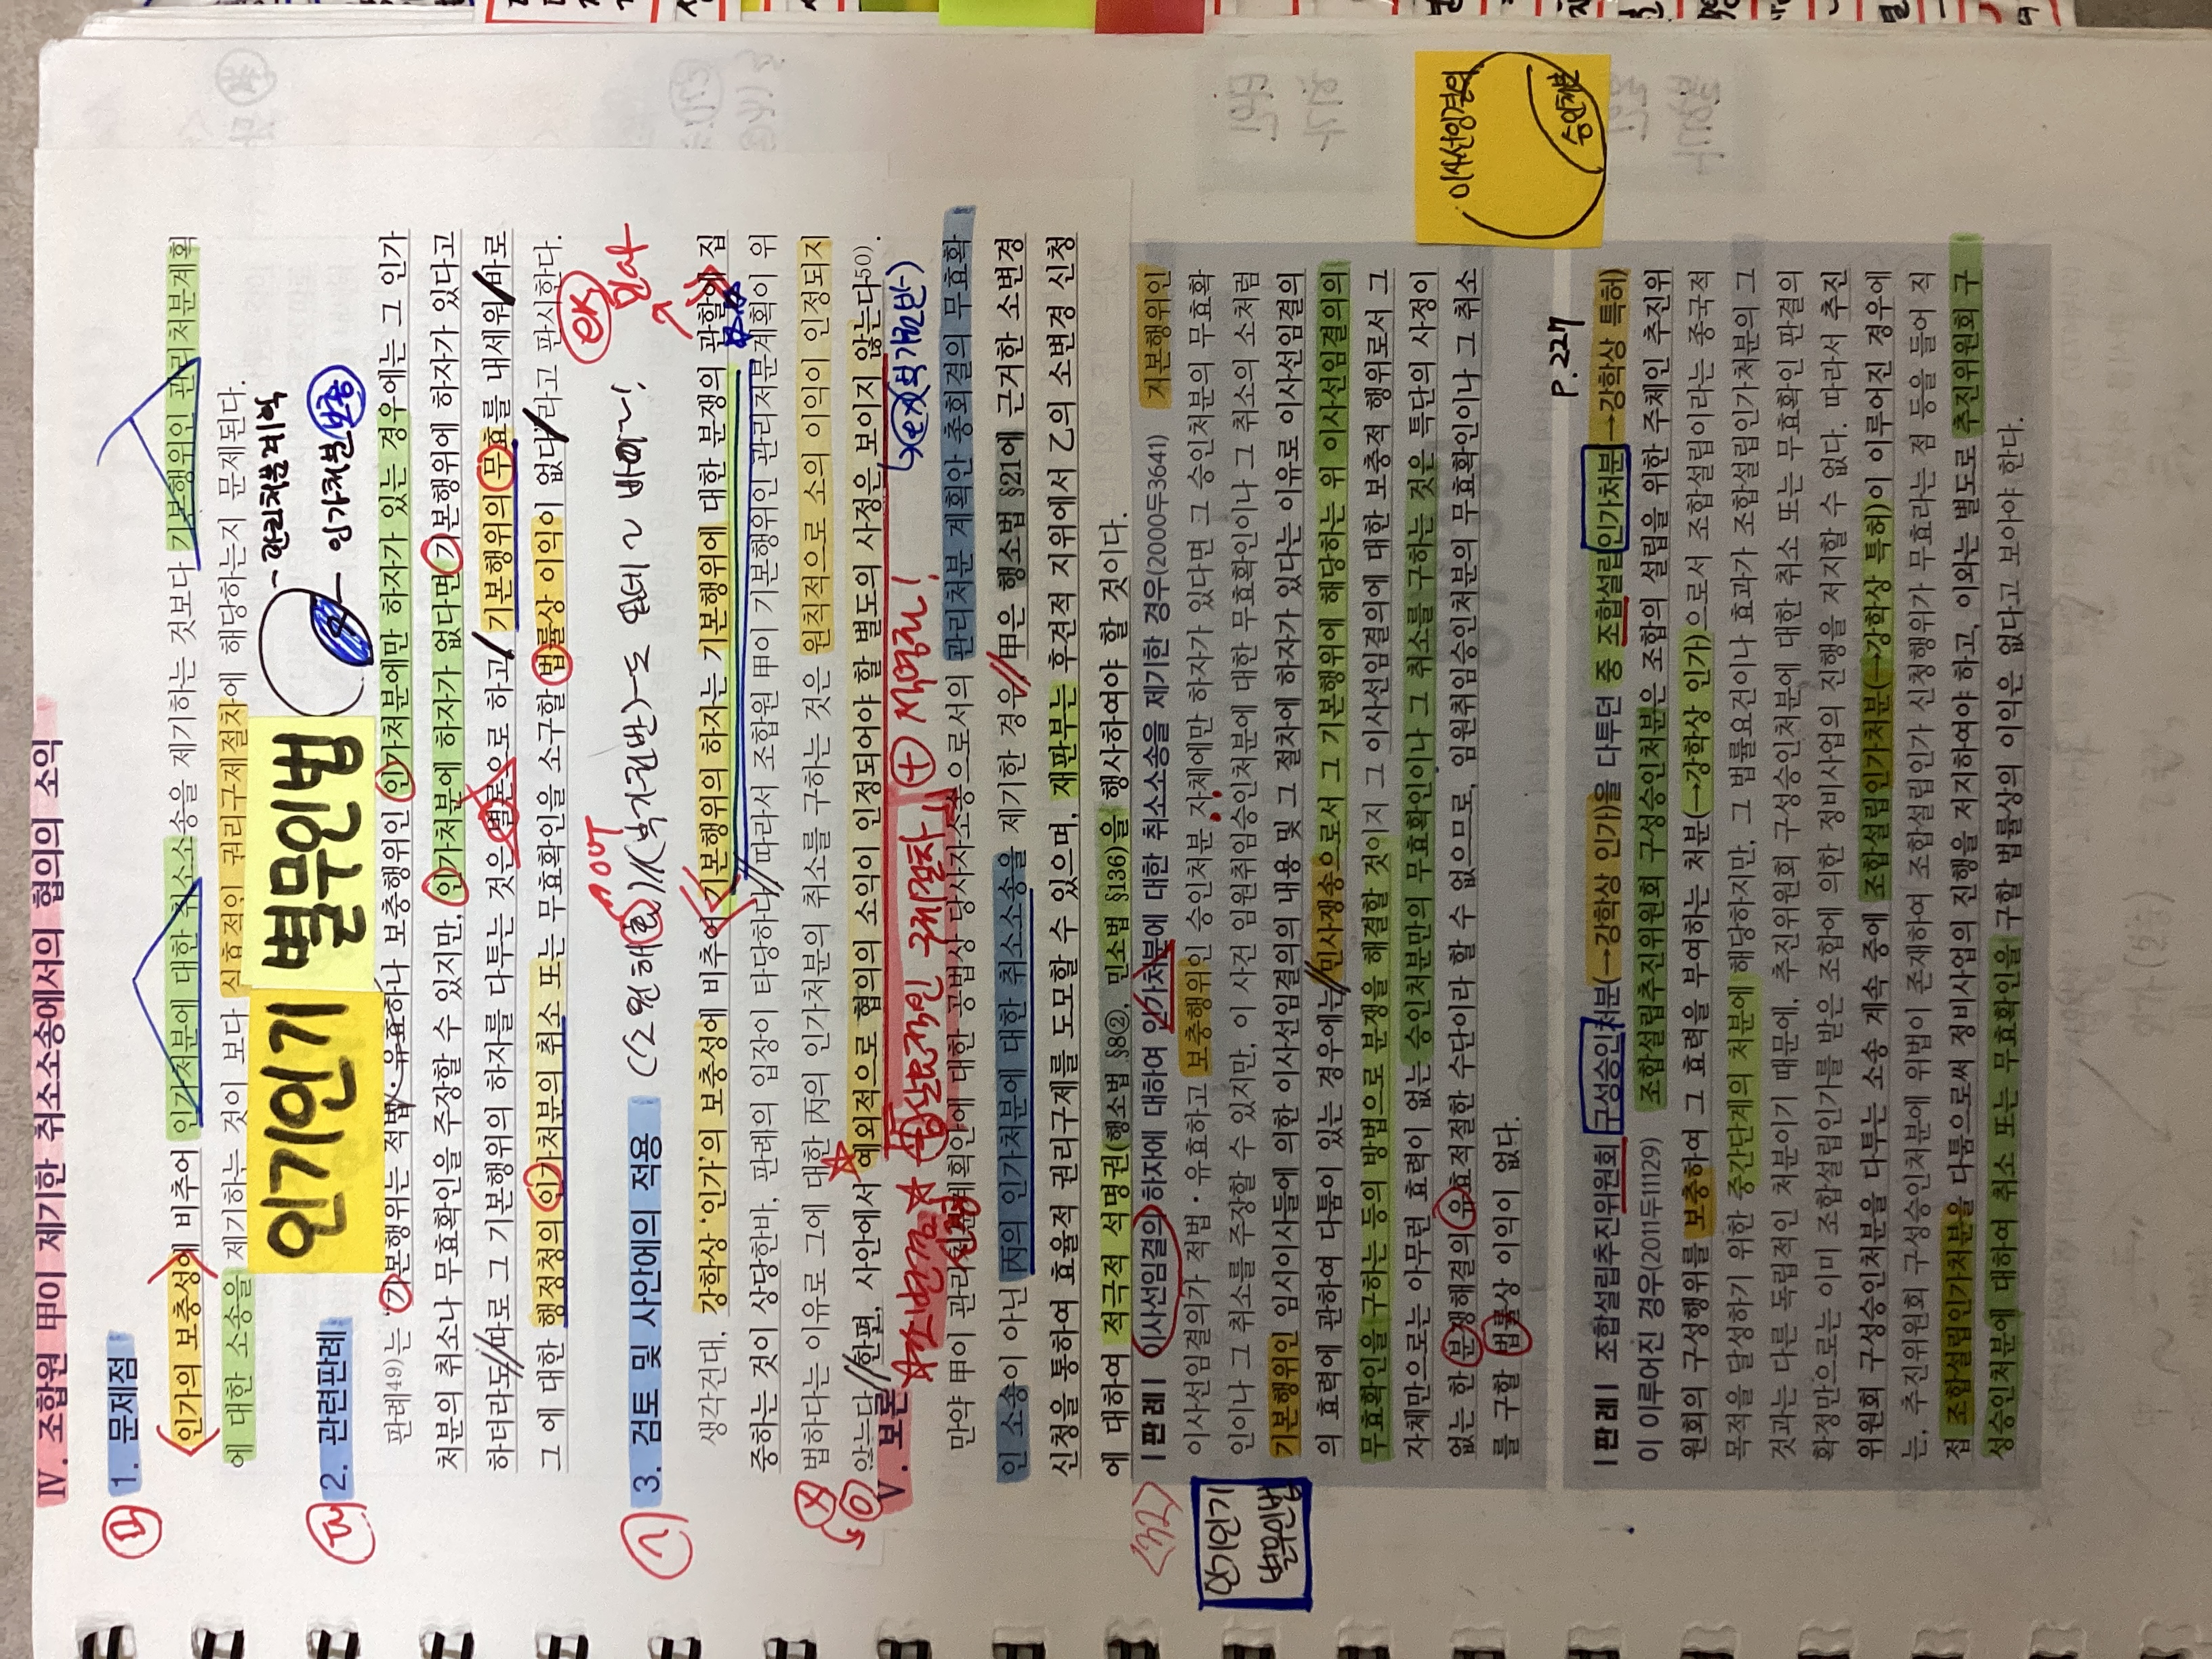 Ⅳ. 조합원 甲이 제기한 취소소송에서의 협의의 소익
1. 문제점
인가의 보충성에 비추어 인가처분에 대한 취소소송을 제기하는 것보다 기본행위인 관리처분계획
에 대한 소송을 제기하는 것이 보다 실효적인 권리구제절차에 해당하는지 문제된다.
인기인기 별무인법
관리처분계획
인가처분 보충
2. 관련판례
판례49)는 "기본행위는 적법·유효하나 보충행위인 인가처분에만 하자가 있는 경우에는 그 인가
처분의 취소나 무효확인을 주장할 수 있지만, 인가처분에 하자가 없다면 기본행위에 하자가 있다고
하더라도 따로 그 기본행위의 하자를 다투는 것은 별론으로 하고 기본행위의 무효를 내세워 바로
그에 대한 행정청의 인가처분의 취소 또는 무효확인을 소구할 법률상 이익이 없다"라고 판시한다.
3. 검토 및 사안에의 적용
생각건대, 강학상 '인가'의 보충성에 비추어 기본행위의 하자는 기본행위에 대한 분쟁의 관할에 집
중하는 것이 상당한바, 판례의 입장이 타당하다. 따라서 조합원 甲이 기본행위인 관리처분계획이 위
법하다는 이유로 그에 대한 丙의 인가처분의 취소를 구하는 것은 원칙적으로 소의 이익이 인정되지
않는다. 한편, 사안에서 예외적으로 협의의 소익이 인정되어야 할 별도의 사정은 보이지 않는다50).
Ⅴ. 보론
만약 甲이 관리처분계획안에 대한 공법상 당사자소송으로서의 관리처분 계획안 총회결의 무효확
인 소송이 아닌 丙의 인가처분에 대한 취소소송을 제기한 경우 甲은 행소법 §21에 근거한 소변경
신청을 통하여 효율적 권리구제를 도모할 수 있으며, 재판부는 후견적 지위에서 乙의 소변경 신청
에 대하여 적극적 석명권(행소법 §8②, 민소법 §136)을 행사하여야 할 것이다.
인기인기
별무인법
|판례| 이사선임결의 하자에 대하여 인가처분에 대한 취소소송을 제기한 경우(2000두3641) 기본행위인
이사선임결의가 적법·유효하고 보충행위인 승인처분 자체에만 하자가 있다면 그 승인처분의 무효확
인이나 그 취소를 주장할 수 있지만, 이 사건 임원취임승인처분에 대한 무효확인이나 그 취소의 소처럼
기본행위인 임시이사들에 의한 이사선임결의의 내용 및 그 절차에 하자가 있다는 이유로 이사선임결의
의 효력에 관하여 다툼이 있는 경우에는 민사쟁송으로서 그 기본행위에 해당하는 위 이사선임결의의
무효확인을 구하는 등의 방법으로 분쟁을 해결할 것이지 그 이사선임결의에 대한 보충적 행위로서 그
자체만으로는 아무런 효력이 없는 승인처분만의 무효확인이나 그 취소를 구하는 것은 특단의 사정이
없는 한 분쟁해결의 유효적절한 수단이라 할 수 없으므로, 임원취임승인처분의 무효확인이나 그 취소
를 구할 법률상 이익이 없다.
이사선임결의
승인처분
P.227
|판례| 조합설립추진위원회 구성승인처분(→강학상 인가)을 다투던 중 조합설립인가처분(→강학상 특허)
이 이루어진 경우(2011두11129) 조합설립추진위원회 구성승인처분은 조합의 설립을 위한 주체인 추진위
원회의 구성행위를 보충하여 그 효력을 부여하는 처분(→강학상 인가)으로서 조합설립이라는 종국적
목적을 달성하기 위한 중간단계의 처분에 해당하지만, 그 법률요건이나 효과가 조합설립인가처분의 그
것과는 다른 독립적인 처분이기 때문에, 추진위원회 구성승인처분에 대한 취소 또는 무효확인 판결의
확정만으로는 이미 조합설립인가를 받은 조합에 의한 정비사업의 진행을 저지할 수 없다. 따라서 추진
위원회 구성승인처분을 다투는 소송 계속 중에 조합설립인가처분(→강학상 특허)이 이루어진 경우에
는, 추진위원회 구성승인처분에 위법이 존재하여 조합설립인가 신청행위가 무효라는 점 등을 들어 직
접 조합설립인가처분을 다툼으로써 정비사업의 진행을 저지하여야 하고, 이와는 별도로 추진위원회 구
성승인처분에 대하여 취소 또는 무효확인을 구할 법률상의 이익은 없다고 보아야 한다.